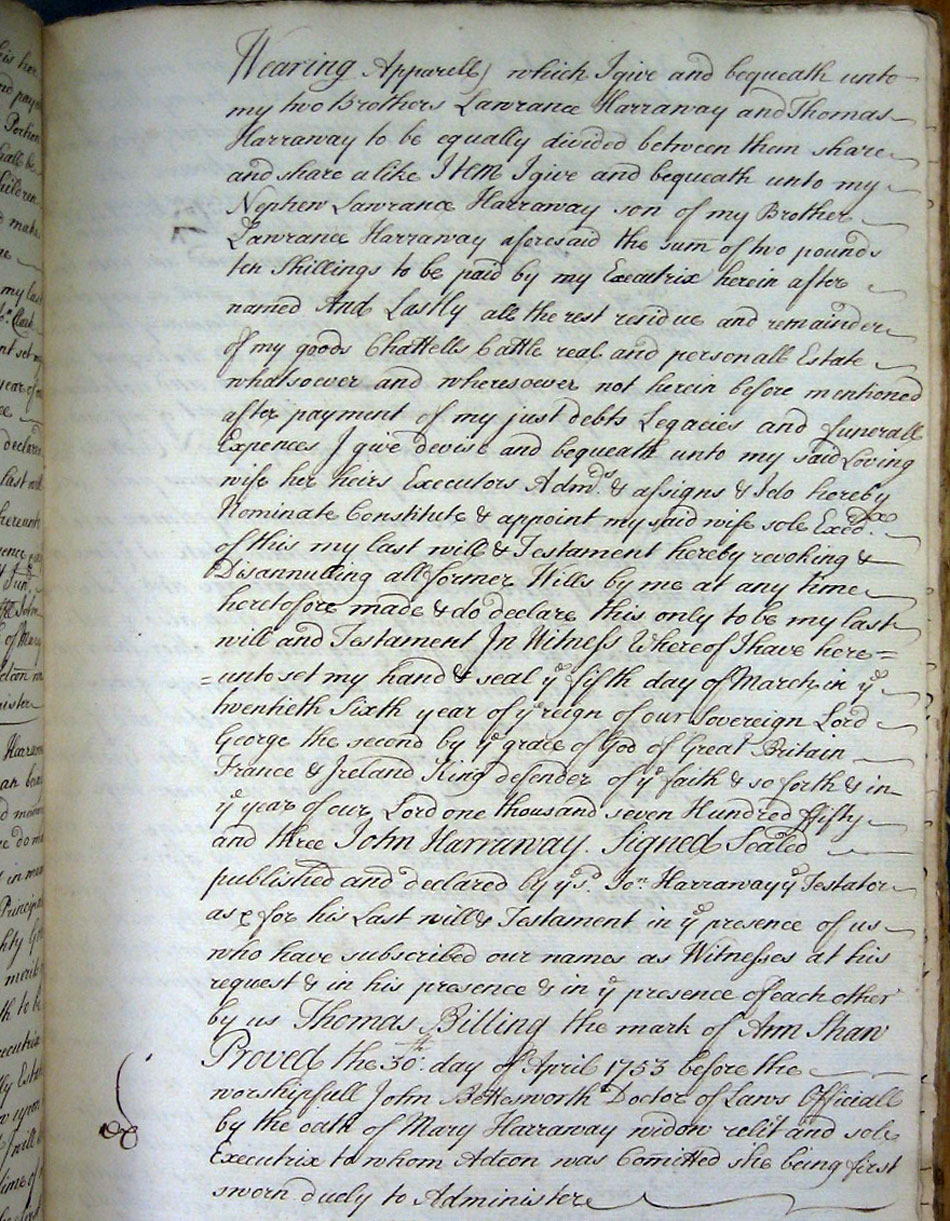 his her
nd paym
Portion
hall be
hildren
d make
my last
nt set my
year of
declared
last will
hereunto
of Mary
Wearing Apparell) which I give and bequeath unto
my two Brothers Lawrance Harraway and Thomas
Harraway to be equally divided between them share
and share alike Item I give and bequeath unto my
Nephew Lawrance Harraway son of my Brother
Lawrance Harraway aforesaid the sum of two pounds
ten Shillings to be paid by my Executrix herein after
named And Lastly all the rest residue and remainder
of my goods Chattells Cattle real and personall Estate
whatsoever and wheresoever not herein before mentioned
after payment of my just debts Legacies and funerall
Expences I give devise and bequeath unto my said Loving
wife her heirs Executors Admrs. & assigns & I do hereby
Nominate Constitute & appoint my said wife sole Execx.
of this my last will & Testament hereby revoking &
Disannulling all former Wills by me at any time
heretofore made & do declare this only to be my last
will and Testament In Witness Whereof I have here=
=unto set my hand & seal ye fifth day of March in ye
twentieth Sixth year of ye reign of our Sovereign Lord
George the second by ye grace of God of Great Britain
France & Ireland King defender of ye faith & so forth & in
ye year of our Lord one thousand seven Hundred ffifty
and three John Harraway. Signed Sealed
published and declared by ye sd. Jon. Harraway ye Testator
as & for his Last will & Testament in ye presence of us
who have subscribed our names as Witnesses at his
request & in his presence & in ye presence of each other
by us Thomas Billing the mark of Ann Shaw
Proved the 30th. day of April 1753 before the
worshipfull John Bettesworth Doctor of Laws Officiall
by the oath of Mary Harraway widow relict and sole
Executrix to whom Adcon was Comitted she being first
sworn duely to Administer